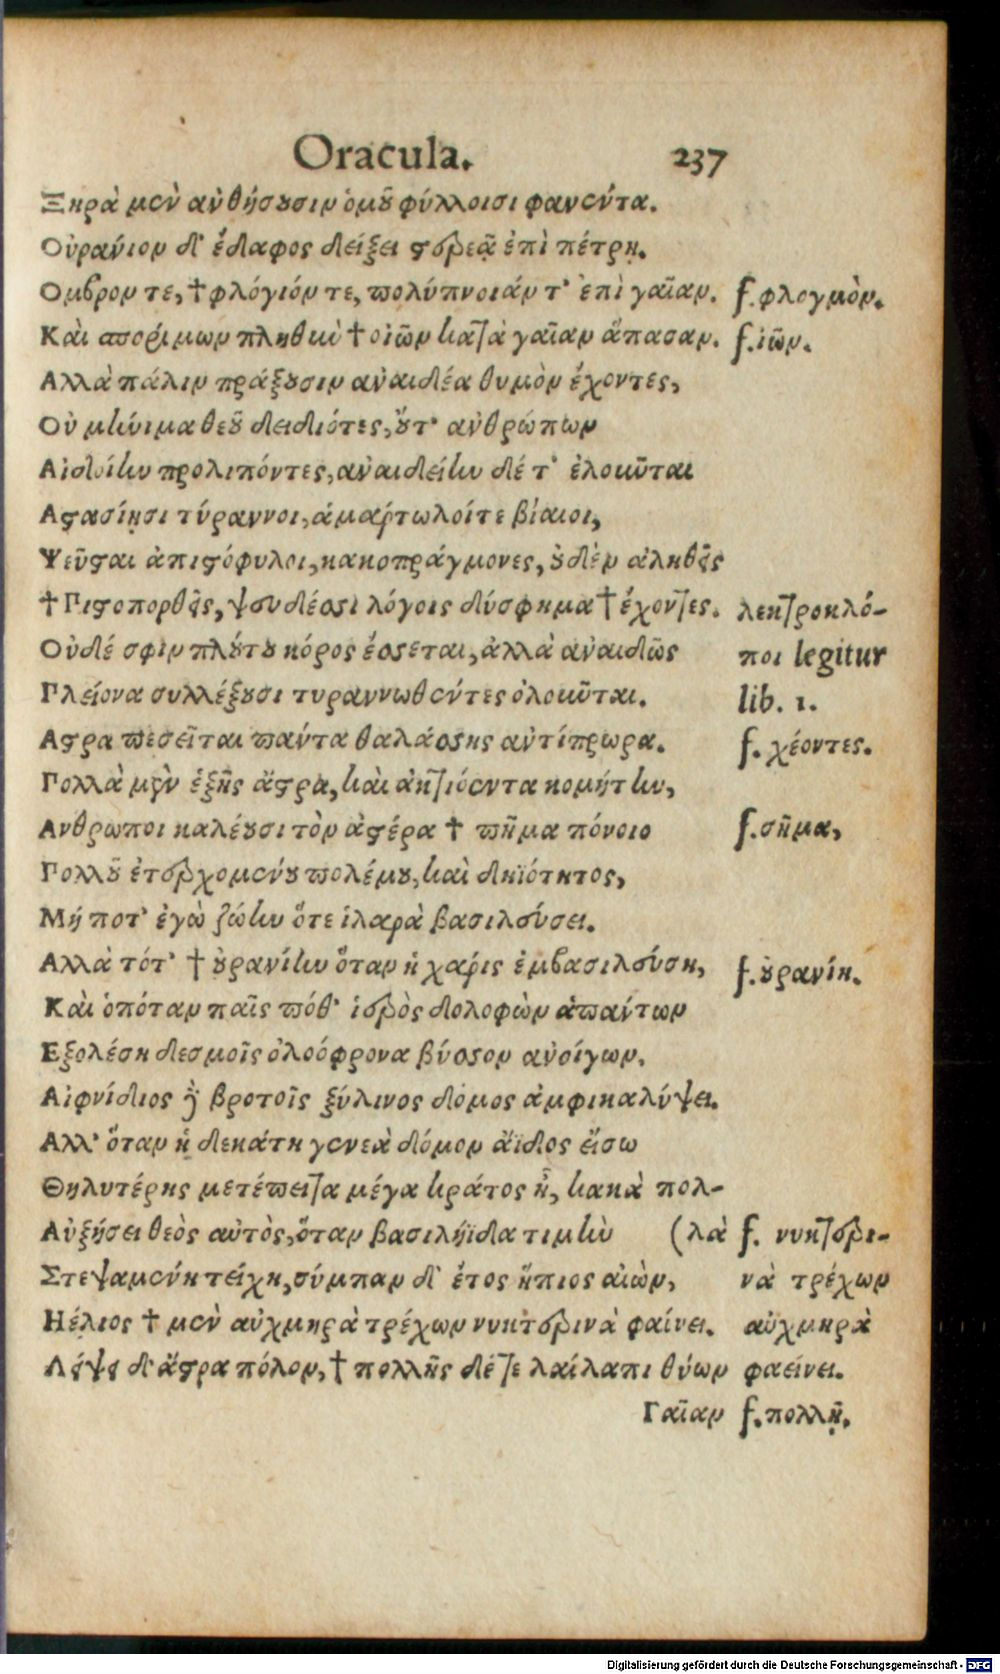 Oracula. 237
Ξηρὰ μὲν ἀνθήσουσιν ὁμοῦ φύλλοισι φανέντα.
Οὐράνιον δ᾽ ἔδαφος δείξει στερεᾷ ἐπὶ πέτρῃ.
Ομβρον τε, † φλόγιόν τε, πολύπνοιάν τ᾽ ἐπὶ γαῖαν. f. φλογμὸν.
Καὶ σπορίμων πληθὺν † οἰῶν κατὰ γαῖαν ἅπασαν. f. ἰῶν.
Αλλὰ πάλιν πράξουσιν ἀναιδέα θυμὸν ἔχοντες,
Οὐ μήνιμα θεοῦ δειδιότες, οὔτ᾽ ἀνθρώπων
Αἰδοίην προλιπόντες, ἀναιδείην δέ τ᾽ ἐλοκῶται
Αστασίῃσι τύραννοι, ἁμαρτωλοίτε βίαιοι,
Ψεῦσται ἀπιστόφυλοι, κακοπράγμονες, οὐδὲν ἀληθεῖς
† Πιστοπορθεῖς, ψευδέσσι λόγοις δύσφημα † ἔχοντες. λεκτροκλό-
Οὐδέ σφιν πλούτου κόρος ἔσσεται, ἀλλὰ ἀναιδῶς ποι legitur
Πλείονα συλλέξουσι τυραννωθέντες ὀλοκῶται. lib. 1.
Αστρα πεσεῖται πάντα θαλάσσης ἀντίπρωρα. f. χέοντες.
Πολλὰ μὲν ἑξῆς ἄστρα, καὶ ἀκτιόεντα κομήτην,
Ανθρωποι καλέουσι τὸν ἀστέρα † πῆμα πόνοιο f. σῆμα,
Πολλοῦ ἐπερχομένου πολέμου, καὶ δηϊότητος,
Μή ποτ᾽ ἐγὼ ζώην ὅτε ἱλαρὰ βασιλεύσει.
Αλλὰ τότ᾽ † οὐρανίην ὅταν ἡ χάρις ἐμβασιλεύσῃ, f. οὐρανίη.
Καὶ ὁπόταν παῖς πόθ᾽ ἱερὸς δολοφὼν ἁπάντων
Εξολέσῃ δεσμοῖς ὀλοόφρονα βύσσον ἀνοίγων.
Αἰφνίδιος γὰρ βροτοῖς ξύλινος δόμος ἀμφικαλύψει.
Αλλ᾽ ὅταν ἡ δεκάτη γενεὰ δόμον ἄϊδος εἴσω
Θηλυτέρης μετέπειτα μέγα κράτος ᾖ, κακὰ πολ-
Αὐξήσει θεὸς αὐτὸς, ὅταν βασιληΐδα τιμὴν (λὰ f. νυκτερι-
Στεψαμένη τείχῃ, σύμπαν δ᾽ ἔτος ἤπιος αἰὼν, νὰ τρέχων
Ηέλιος † μὲν αὐχμηρὰ τρέχων νυκτερινὰ φαίνει. αὐχμηρὰ
Λείψει δ᾽ ἄστρα πόλον, † πολλῆς δέ τε λαίλαπι θύων φαείνει.
Γαῖαν f. πολλῇ.
Digitalisierung gefördert durch die Deutsche Forschungsgemeinschaft - DFG